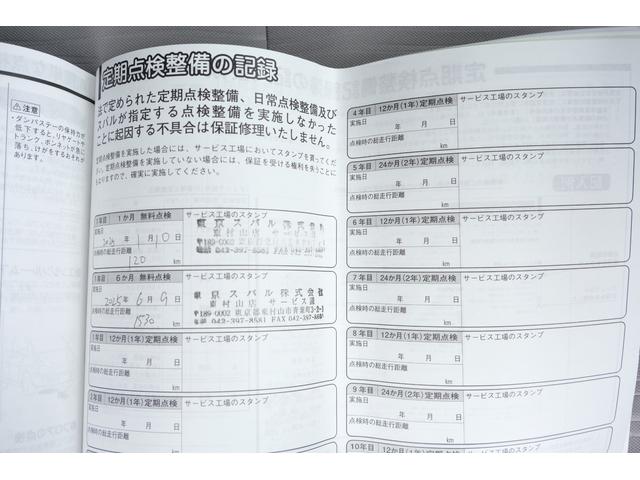 ⚠注意
・ダンパステーの保持力が
低下すると、リヤゲートや
トランク、ボンネットが急に
落ち、けがをするおそれが
あります。
定期点検整備の記録
法で定められた定期点検整備、日常点検整備及び
スバルが指定する点検整備を実施しなかった
ことに起因する不具合は保証修理いたしません。
定期点検整備を実施した場合には、サービス工場においてスタンプを貰ってくだ
さい。定期点検整備を実施していない場合には、保証を受ける権利を失うことに
なりますので、確実に実施してください。
1年目 1か月 無料点検 サービス工場のスタンプ
実施日
2025年 1月10日
点検時の総走行距離
120 km
東京スバル株式会社
東村山店 サービス課
〒189-0002 東京都東村山市青葉町3-2-1
☎ 042-397-8581 FAX 042-397-8680
1年目 6か月 無料点検 サービス工場のスタンプ
実施日
2025年 6月 9日
点検時の総走行距離
1530 km
東京スバル株式会社
東村山店 サービス課
〒189-0002 東京都東村山市青葉町3-2-1
☎ 042-397-8581 FAX 042-397-8680
1年目 12か月(1年)定期点検 サービス工場のスタンプ
実施日
年 月 日
点検時の総走行距離
km
2年目 12か月(1年)定期点検 サービス工場のスタンプ
実施日
年 月 日
点検時の総走行距離
km
4年目 12か月(1年)定期点検 サービス工場のスタンプ
実施日
年 月 日
点検時の総走行距離
km
5年目 24か月(2年)定期点検 サービス工場のスタンプ
実施日
年 月 日
点検時の総走行距離
km
6年目 12か月(1年)定期点検 サービス工場のスタンプ
実施日
年 月 日
点検時の総走行距離
km
7年目 24か月(2年)定期点検 サービス工場のスタンプ
実施日
年 月 日
点検時の総走行距離
km
8年目 12か月(1年)定期点検 サービス工場のスタンプ
実施日
年 月 日
点検時の総走行距離
km
9年目 24か月(2年)定期点検 サービス工場のスタンプ
実施日
年 月 日
点検時の総走行距離
km
10年目 12か月(1年)定期点検 サービス工場のスタンプ